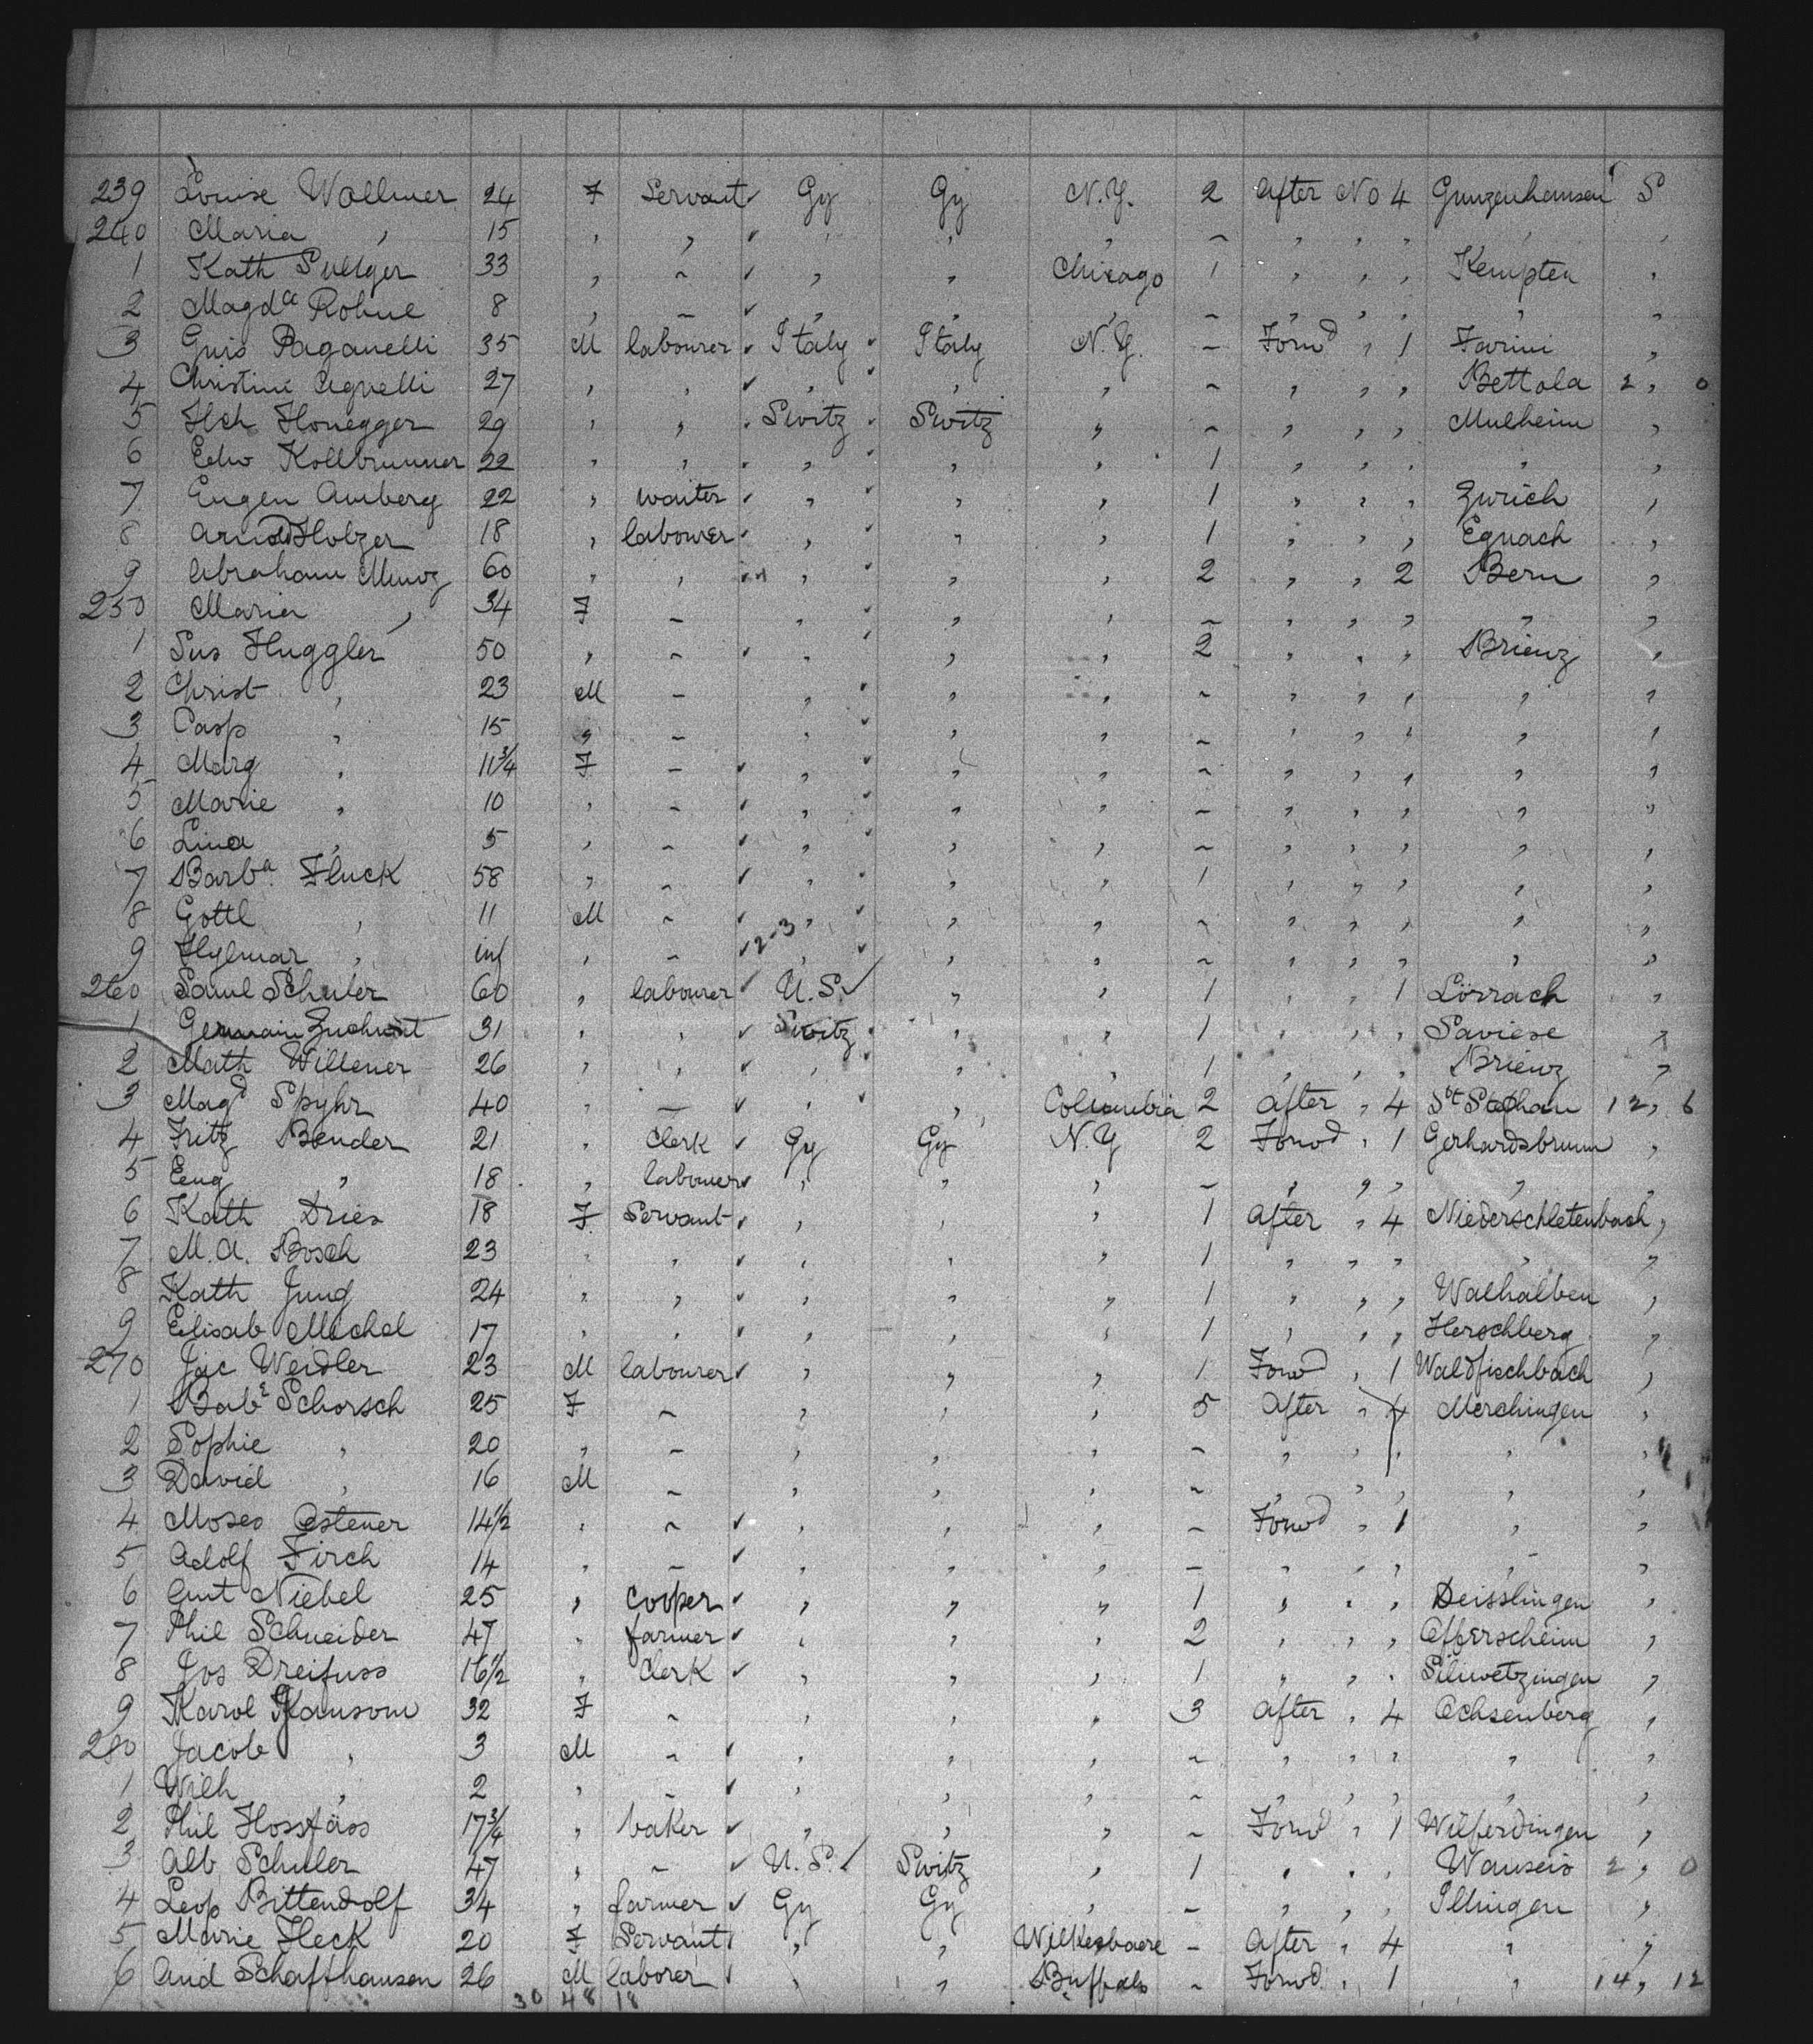 239 Louise Wollmer 24 F Servant Gy Gy N.Y. 2 after No 4 Gunzenhausen S
240 Maria " 15 " " " " " ~ " " " " "
1 Kath 33 " ~ " " Chicago 1 " " " Kempten "
2 Magda Rohne 8 " ~ " " " ~ " " " " "
3 Guis Paganelli 35 M labourer Italy Italy N.Y. – Forwd " 1 Farini "
4 Christine Agnelli 27 " " " " " ~ " " " Bettola 2, 0
5 Hch Honegger 29 " " Switz Switz " ~ " " " Mulheim "
6 Edw Kollbrunner 22 " " " " " 1 " " " " "
7 Eugen Amberg 22 " waiter " " " 1 " " " Zurich "
8 Arnold Holzer 18 " labourer " " " 1 " " " Egnach "
9 Abraham 60 " " " " " 2 " " 2 Bern "
250 Maria " 34 F – " " " ~ " " " " "
1 Sus Huggler 50 " ~ " " " 2 " " " Brienz "
2 Christ " 23 M – " " " ~ " " " " "
3 Casp " 15 " – " " " ~ " " " " "
4 Marg " 11 3/4 F – " " " ~ " " " " "
5 Marie " 10 " – " " " – " " " " "
6 Lina " 5 " ~ " " " ~ " " " " "
7 Barba Fluck 58 " ~ " " " 1 " " " " "
8 Gottl " 11 M ~ " " " ~ " " " " "
9 Hylmar " inf " – 2-3 " " " ~ " " " " "
260 Saml Schuler 60 " labourer U.S. " " 1 " " 1 Lörrach "
1 Germain 31 " " Switz " " 1 " " " Saviese "
2 Math Willener 26 " " " " " 1 " " " Brienz "
3 Magd Spyhr 40 " — " " Columbia 2 after " 4 St Stephan 12, 6
4 Fritz Bender 21 " Clerk Gy Gy N.Y 2 Forwd " 1 Gerhardsbrunn "
5 Eug " 18 " labourer " " " – " " " " "
6 Kath Dries 18 F Servant " " " 1 after " 4 Niederschletenbach "
7 M.A. Bosch 23 " " " " " 1 " " " " "
8 Kath Jung 24 " " " " " 1 " " " Walhalben "
9 Elisab Michel 17 " " " " " 1 " " " Herschberg "
270 Jac Weidler 23 M labourer " " " 1 Forwd " 1 Waldfischbach "
1 Babe Schorsch 25 F ~ " " " 5 after " 4 Merchingen "
2 Sophie " 20 " – " " " ~ " " " " "
3 David " 16 M – " " " ~ " " " " "
4 Moses Ostener 14 1/2 " ~ " " " ~ Forwd " 1 " "
5 Adolf Firch 14 " ~ " " " – " " " " "
6 Niebel 25 " cooper " " " 1 " " " Deisslingen "
7 Phil Schneider 47 " farmer " " " 2 " " " "
8 Jos Dreifuss 16 1/2 " Clerk " " " 1 " " " "
9 Karol 32 F ~ " " " 3 after " 4 Ochsenberg "
280 Jacob " 3 M ~ " " " ~ " " " " "
1 Wilh " 2 " ~ " " " ~ " " " " "
2 Phil Hossfäss 17 3/4 " baker " " " ~ Forwd " 1 Wilferdingen "
3 Alb Schuler 47 " ~ U.S. Switz " 1 " " " 2, 0
4 Leop Bittendolf 34 " farmer Gy Gy " – " " " Illingen "
5 Marie Heck 20 F Servant " " Wilkesbarre – after " 4 " "
6 And Schaffhausen 26 M laborer " " Buffalo ~ Forwd " 1 " 14, 12
30 48 18